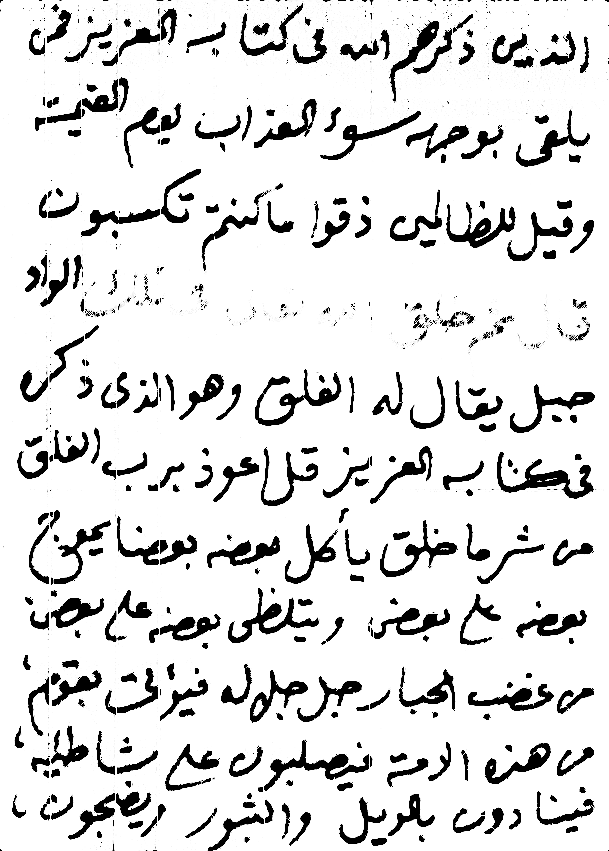 الذين ذكرهم الله فى كتابه العزيز فمن
يلقى بوجهه سوء العذاب يوم القيمة
وقيل للظالمين ذقوا ماكنتم تكسبون
قال ثم خلق الوادى
جبل يقال له الفلق وهو الذى ذكره
فى كتابه العزيز قل اعوذ برب الفلق
من شر ما خلق يأكل بعضه بعضا يموج
بعضه على بعض ويتلظى بعضه على بعض
من غضب الجبار جل جلاله فيؤتى بقوم
من هذه الامة فيصلبون على شاطئه
فينادون بالويل والثبور ويضجون